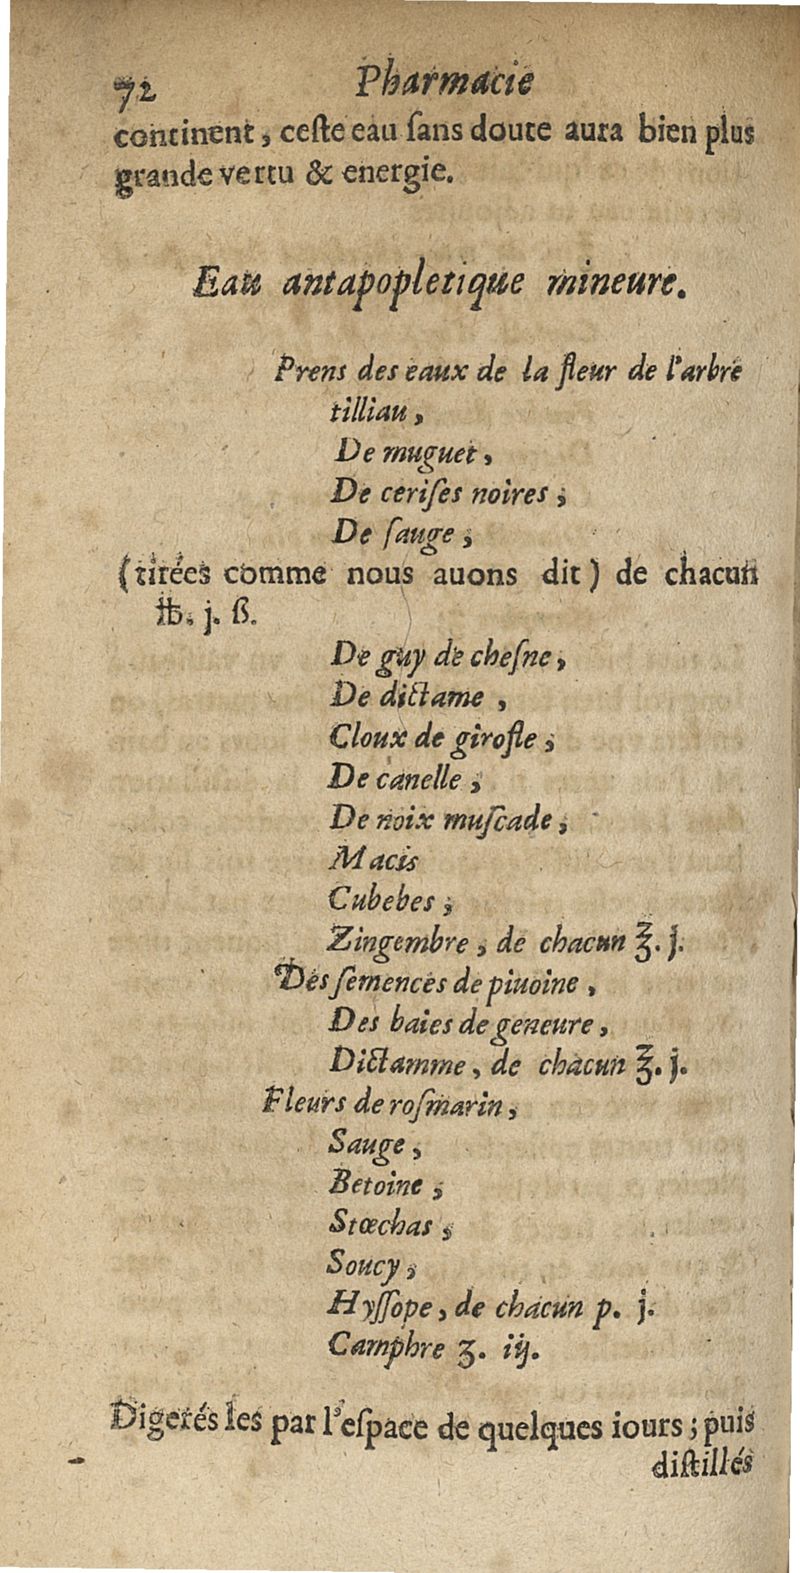 72 Pharmacie
continent, ceſte eau ſans doute aura bien plus
grande vertu & energie.
Eau antapopletique mineure.
Prens des eaux de la fleur de l'arbre
tilliau,
De muguet,
De ceriſes noires,
De ſauge,
(tirées comme nous auons dit) de chacun
℔. j. ß.
De guy de cheſne,
De dictame,
Cloux de girofle,
De canelle,
De noix muſcade,
Macis
Cubebes,
Zingembre, de chacun ℥. j.
Des ſemences de piuoine,
Des baies de geneure,
Dictamme, de chacun ℥. j.
Fleurs de roſmarin,
Sauge,
Betoine,
Stœchas,
Soucy,
Hyſſope, de chacun p. j.
Camphre ʒ. iij.
Digerés les par l'eſpace de quelques iours; puis
diſtillés